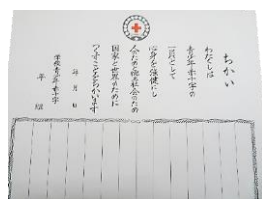 ちかい
わたくしは
青少年赤十字の
一員として
心身を強健にし
人のためと郷土社会のため
国家と世界のために
つくすことをちかいます
年 月 日
学校青少年赤十字
年 組